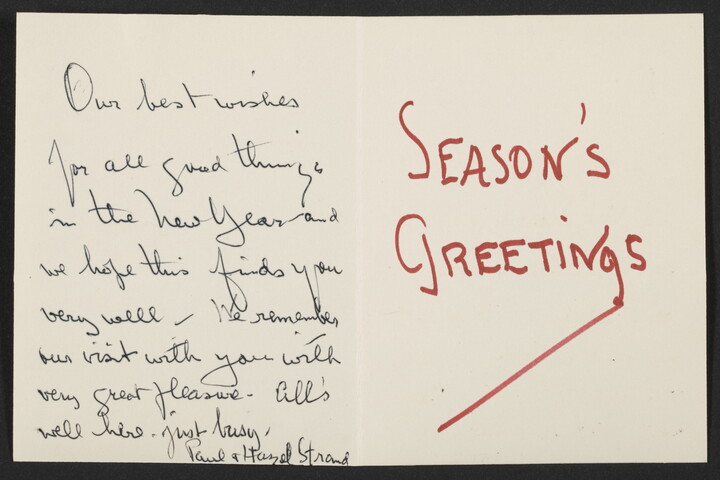 Our best wishes
for all good things
in the New Year and
we hope this finds you
very well – We remember
our visit with you with
very great pleasure – All's
well here – just busy.
Paul & Hazel Strand
SEASON'S
GREETINGS